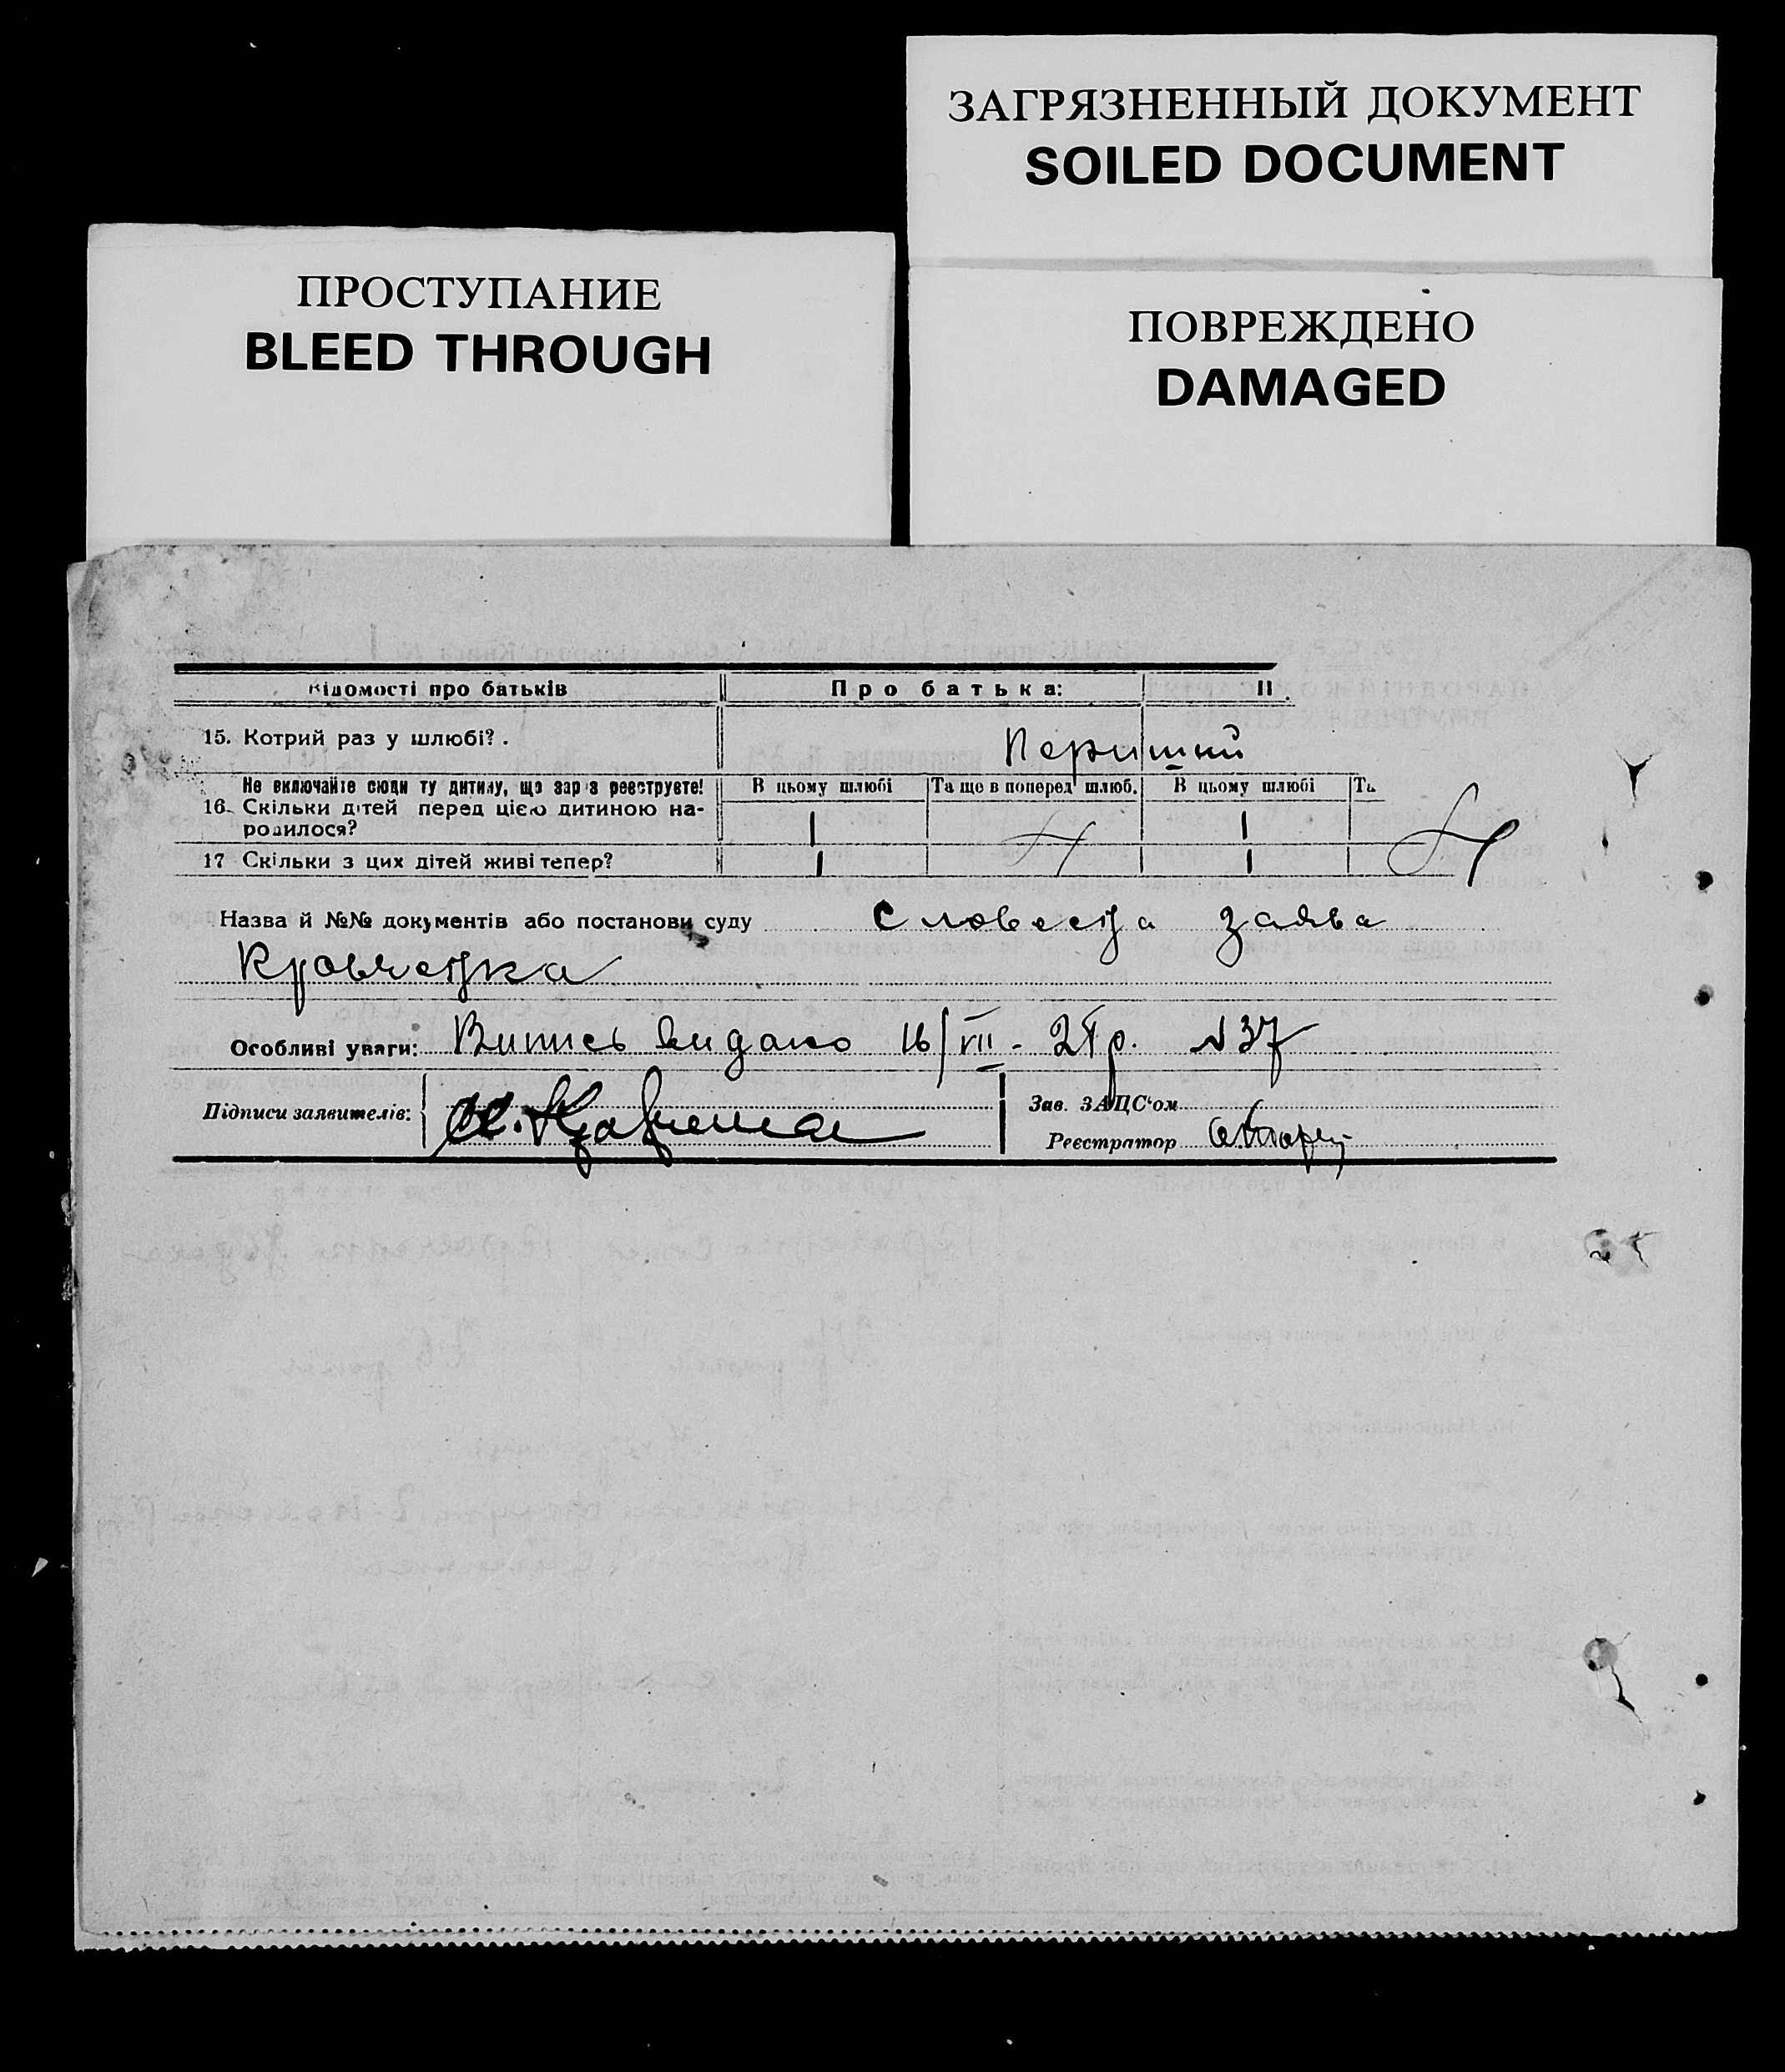 ЗАГРЯЗНЕННЫЙ ДОКУМЕНТ
SOILED DOCUMENT
ПРОСТУПАНИЕ
BLEED THROUGH
ПОВРЕЖДЕНО
DAMAGED
Відомості про батьків
Про батька:
П
15. Котрий раз у шлюбі?.
Первший
Не включайте сюди ту дитину, що зараз реєструєте!
В цьому шлюбі
Та ще в поперед шлюб.
В цьому шлюбі
Та
16. Скільки дітей перед цією дитиною на-
родилося?
1
1
17 Скільки з цих дітей живі тепер?
1
1
Назва й №№ документів або постанови суду Словесна заява
Кравченка
Особливі уваги: Випись видано 16/VII - 2 р. N 37
Підписи заявителів:
Зав. ЗАЦС'ом
Реєстратор